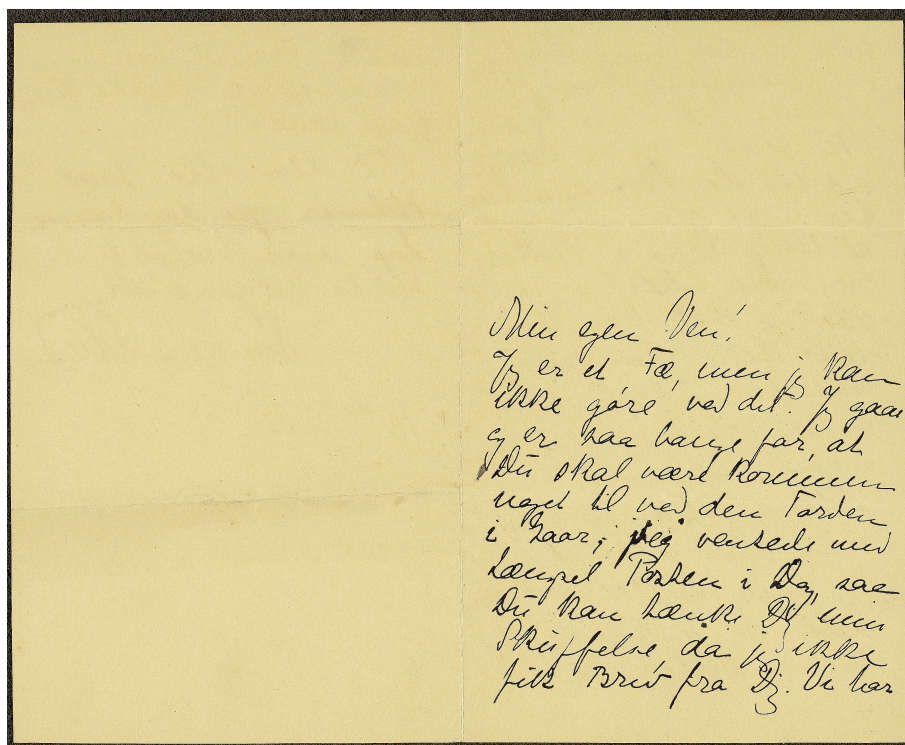 Min egen Ven!
Jeg er et Fæ, men jeg kan
ikke góre ved det. Jeg gaar
og er saa bange for, at
Du skal være kommen
noget til ved den Torden
i Gaar; jeg ventede med
Længsel Posten i Dag, saa
Du kan tænke Dig min
Skuffelse da jeg ikke
fik Brev fra Dig. Vi har